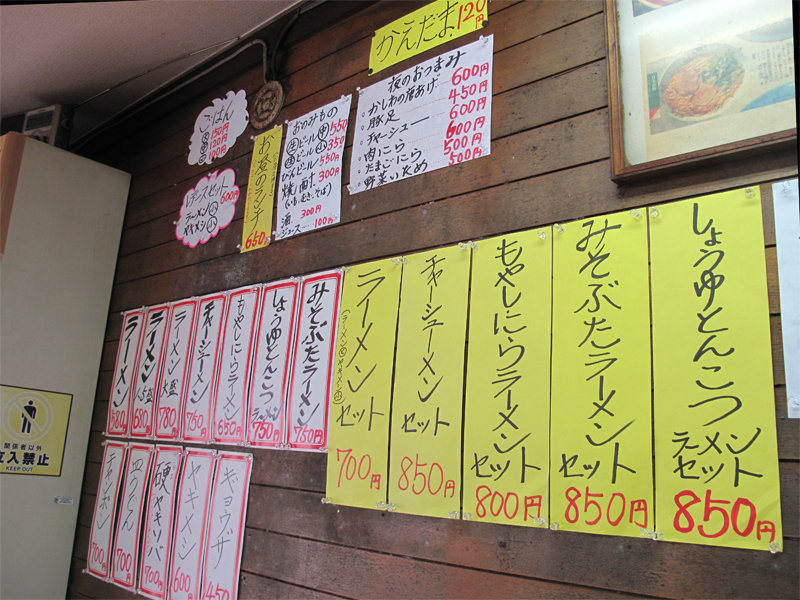 かえだま 120円
ごはん
大 150円
120円
100円
レディースセット
600円
ラーメン小
ヤキメシ小
お昼のランチ
650円
おのみもの
生ビール中 550
生ビール小 350
びんビール 550円
焼酎 300円
(いも、むぎ、そば)
酒 300円
ジュース 100円
夜のおつまみ
・かしわの唐あげ 600円
・豚足 450円
・チャーシュー 600円
・肉にら 600円
・たまごにら 500円
・野菜いため 500円
ラーメン 580
ラーメン 1.5盛 680
ラーメン 大盛 780
チャーシューメン 750円
もやしにらラーメン 650円
しょうゆとんこつラーメン 750円
みそぶたラーメン 750円
ラーメンセット 700円
(ラーメン小 ヤキメシ小)
チャーシューメンセット 850円
もやしにらラーメンセット 800円
みそぶたラーメンセット 850円
しょうゆとんこつラーメンセット 850円
チャンポン 700円
皿うどん 700
硬ヤキソバ 700円
ヤキメシ 600円
ギョウザ 450
関係者以外
立入禁止
KEEP OUT